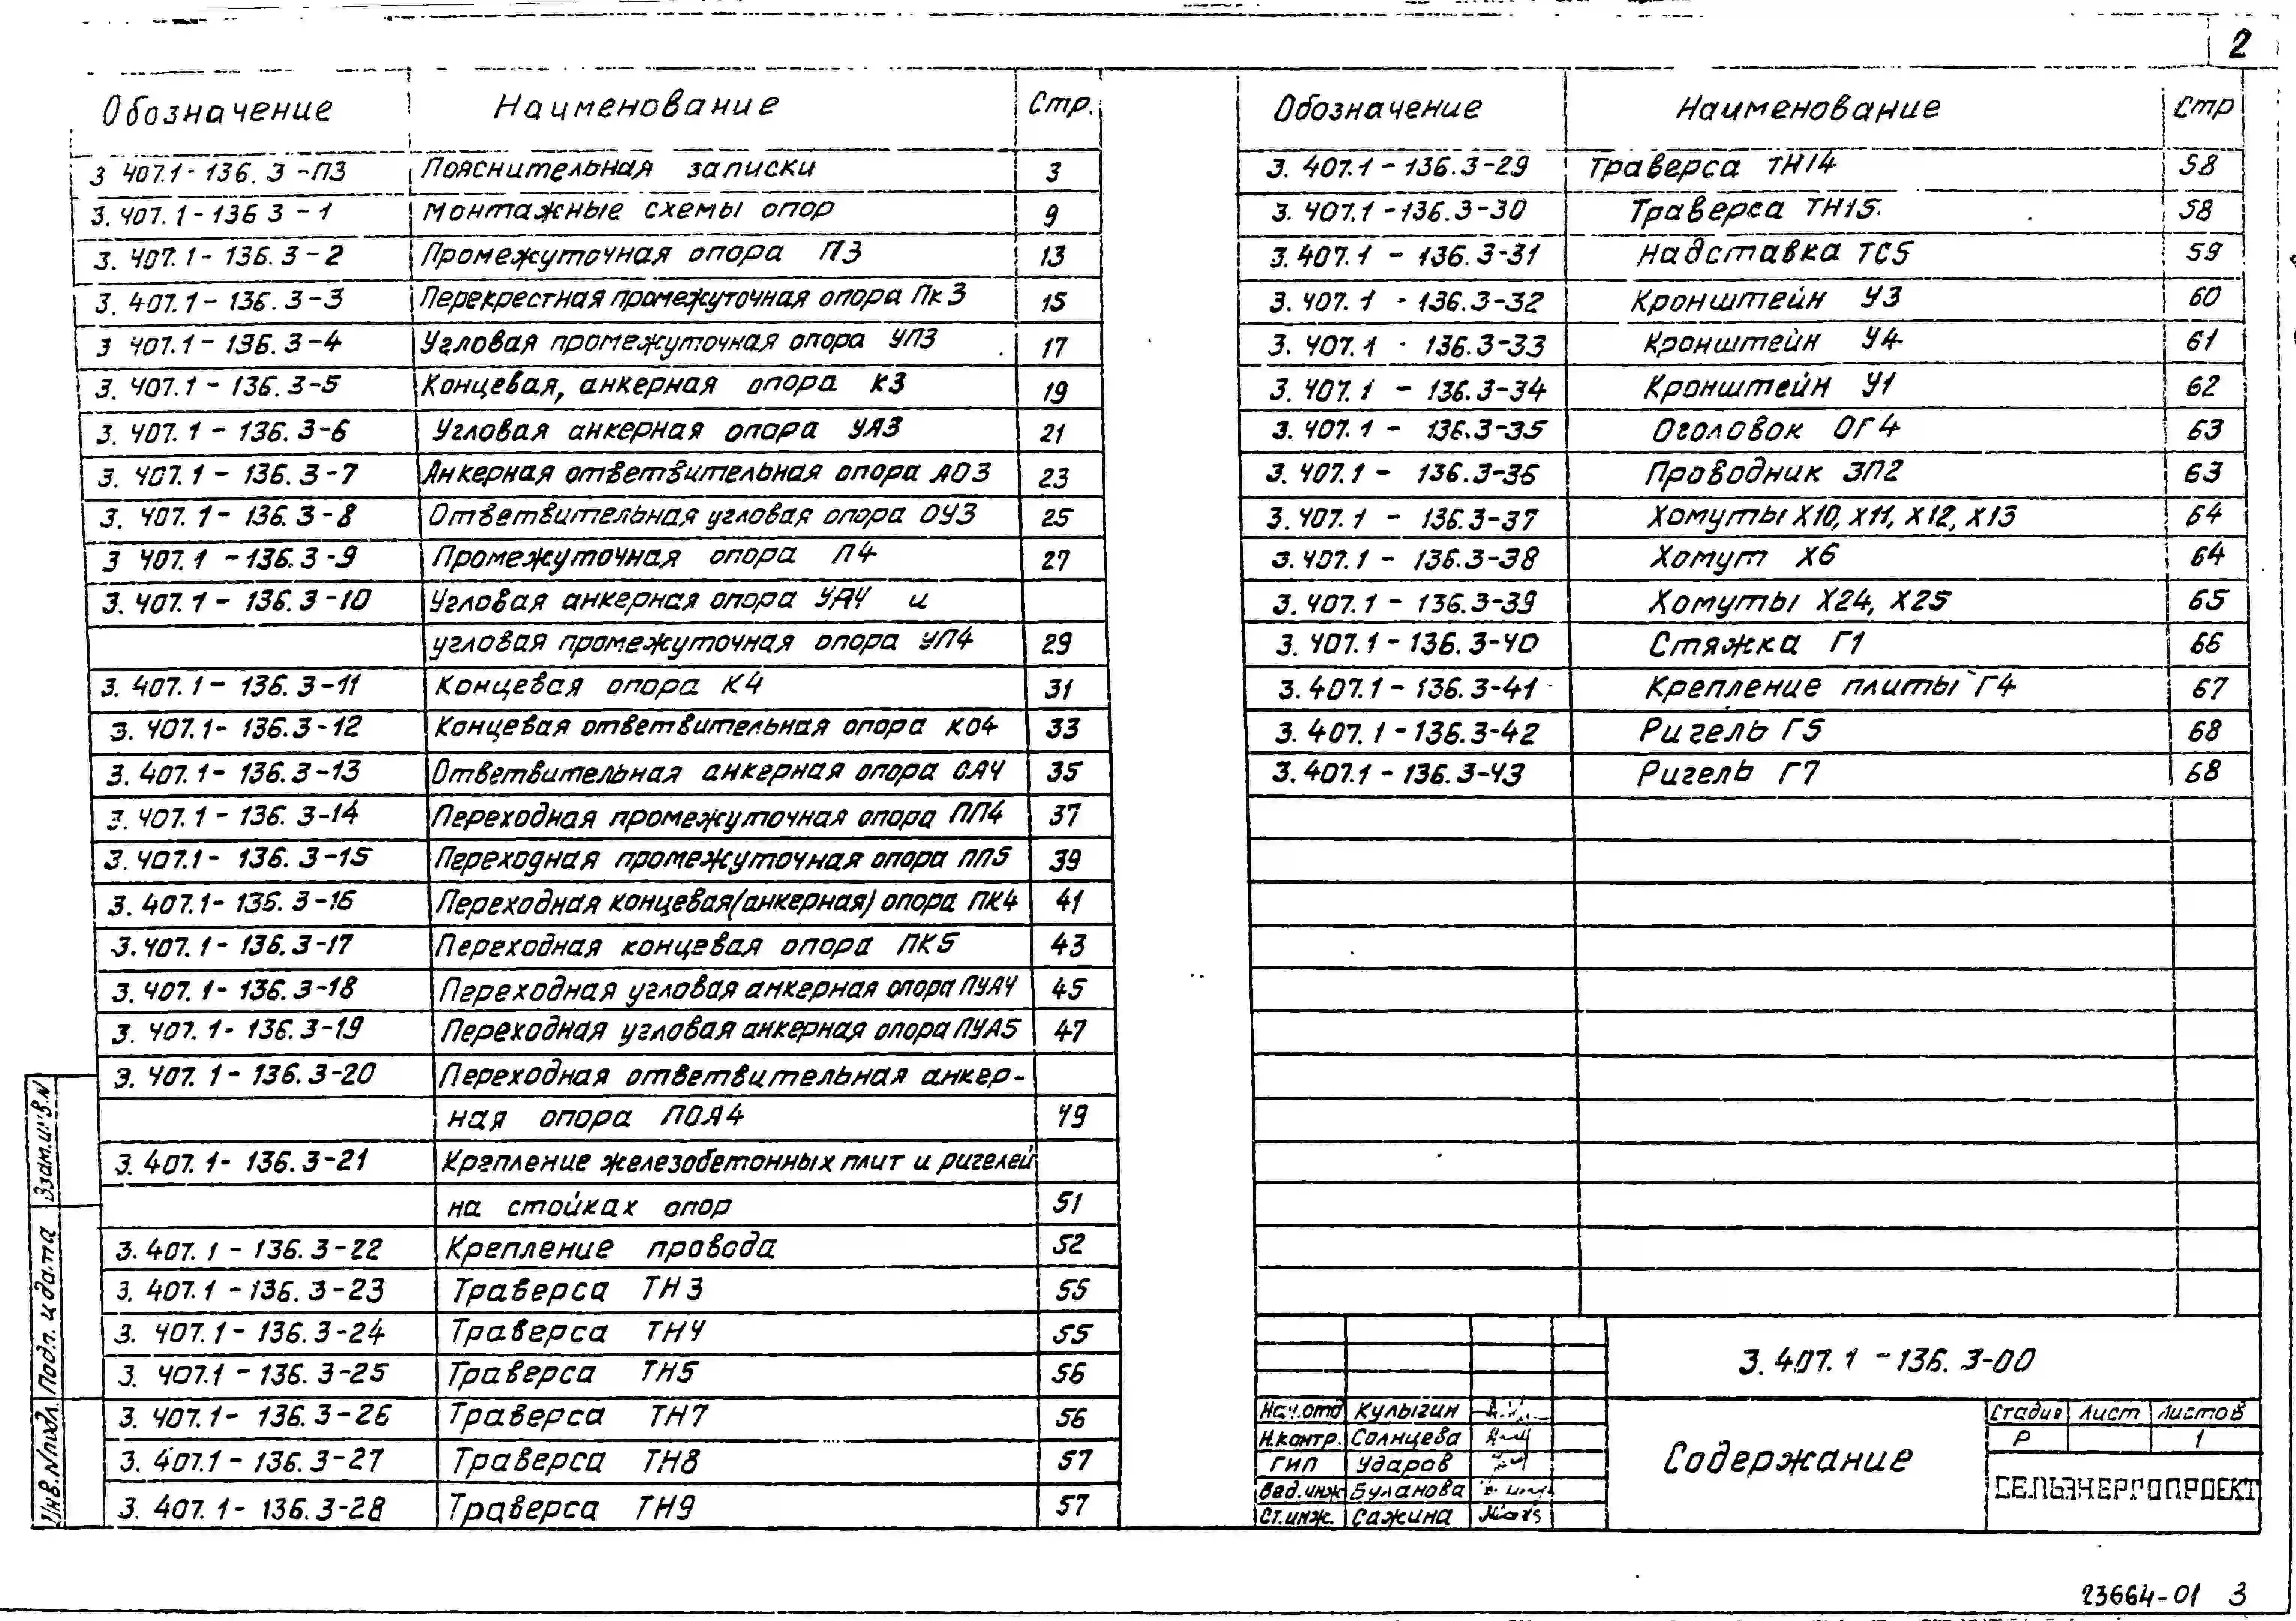 2
Обозначение Наименование Стр.
3 407.1-136.3-ПЗ Пояснительная записки 3
3.407.1-136 3-1 Монтажные схемы опор 9
3.407.1-136.3-2 Промежуточная опора П3 13
3.407.1-136.3-3 Перекрестная промежуточная опора Пк3 15
3 407.1-136.3-4 Угловая промежуточная опора УП3 17
3.407.1-136.3-5 Концевая, анкерная опора К3 19
3.407.1-136.3-6 Угловая анкерная опора УА3 21
3.407.1-136.3-7 Анкерная ответвительная опора АО3 23
3.407.1-136.3-8 Ответвительная угловая опора ОУ3 25
3 407.1-136.3-9 Промежуточная опора П4 27
3.407.1-136.3-10 Угловая анкерная опора УА4 и
угловая промежуточная опора УП4 29
3.407.1-136.3-11 Концевая опора К4 31
3.407.1-136.3-12 Концевая ответвительная опора КО4 33
3.407.1-136.3-13 Ответвительная анкерная опора ОА4 35
3.407.1-136.3-14 Переходная промежуточная опора ПП4 37
3.407.1-136.3-15 Переходная промежуточная опора ПП5 39
3.407.1-136.3-16 Переходная концевая(анкерная) опора ПК4 41
3.407.1-136.3-17 Переходная концевая опора ПК5 43
3.407.1-136.3-18 Переходная угловая анкерная опора ПУА4 45
3.407.1-136.3-19 Переходная угловая анкерная опора ПУА5 47
3.407.1-136.3-20 Переходная ответвительная анкер-
ная опора ПОА4 49
3.407.1-136.3-21 Крепление железобетонных плит и ригелей
на стойках опор 51
3.407.1-136.3-22 Крепление провода 52
3.407.1-136.3-23 Траверса ТН3 55
3.407.1-136.3-24 Траверса ТН4 55
3.407.1-136.3-25 Траверса ТН5 56
3.407.1-136.3-26 Траверса ТН7 56
3.407.1-136.3-27 Траверса ТН8 57
3.407.1-136.3-28 Траверса ТН9 57
Обозначение Наименование Стр
3.407.1-136.3-29 Траверса ТН14 58
3.407.1-136.3-30 Траверса ТН15. 58
3.407.1-136.3-31 Надставка ТС5 59
3.407.1-136.3-32 Кронштейн У3 60
3.407.1-136.3-33 Кронштейн У4 61
3.407.1-136.3-34 Кронштейн У1 62
3.407.1-136.3-35 Оголовок ОГ4 63
3.407.1-136.3-36 Проводник ЗП2 63
3.407.1-136.3-37 Хомуты Х10, Х11, Х12, Х13 64
3.407.1-136.3-38 Хомут Х6 64
3.407.1-136.3-39 Хомуты Х24, Х25 65
3.407.1-136.3-40 Стяжка Г1 66
3.407.1-136.3-41 Крепление плиты Г4 67
3.407.1-136.3-42 Ригель Г5 68
3.407.1-136.3-43 Ригель Г7 68
Взам.инв.N
Подп. и дата
Инв.Nподл.
3.407.1-136.3-00
Нач.отд Кулыгин
Н.контр. Солнцева
ГИП Ударов
Вед.инж Буланова
Ст.инж. Сажина
Содержание
Стадия Лист Листов
Р 1
СЕЛЬЭНЕРГОПРОЕКТ
23664-01 3